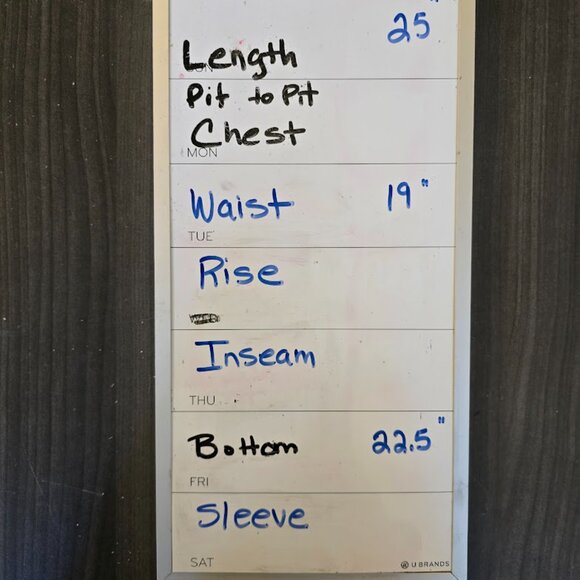 25"
Length
SUN
Pit to Pit
Chest
MON
Waist 19"
TUE
Rise
Inseam
THU
Bottom 22.5"
FRI
Sleeve
SAT
U BRANDS